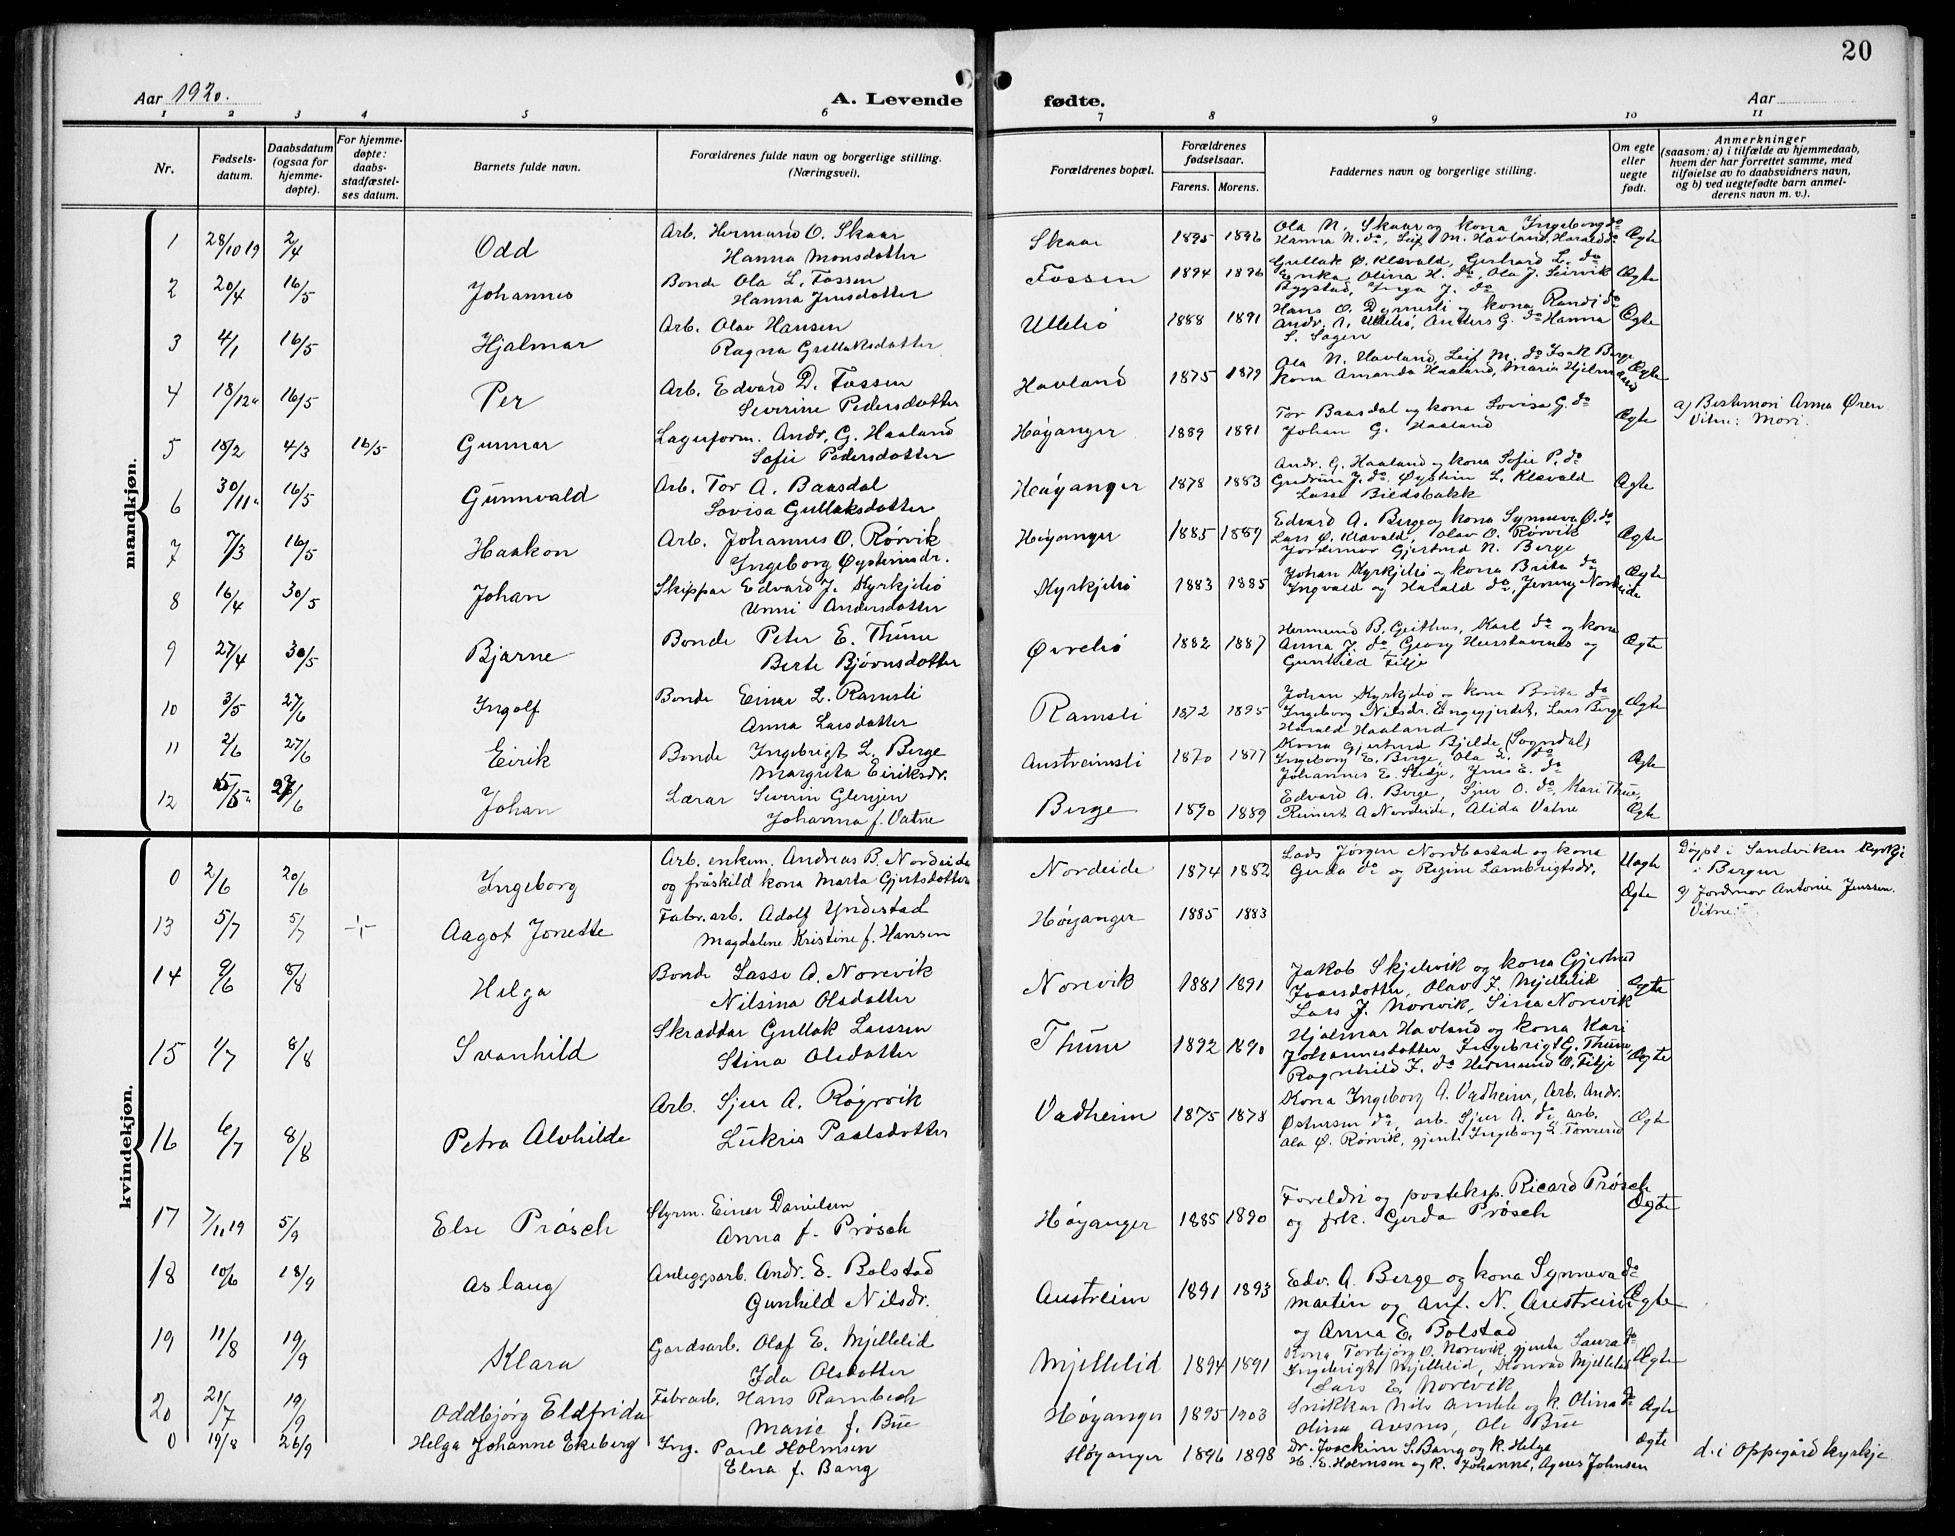 20
Aar 1920.
A. Levende fødte.
Aar
1 2 3 4 5 6 7 8 9 10 11
Nr.
Fødsels-datum.
Daabsdatum (ogsaa for hjemme-døpte).
For hjemme-døpte: daabs-stadfæstel-ses datum.
Barnets fulde navn.
Forældrenes fulde navn og borgerlige stilling. (Næringsvei).
Forældrenes bopæl.
Forældrenes fødselsaar.
Farens. Morens.
Faddernes navn og borgerlige stilling.
Om egte eller uegte født.
Anmerkninger
(saasom: a) i tilfælde av hjemmedaab, hvem der har forrettet samme, med tilføielse av to daabsvidners navn, og b) ved uegtefødte barn anmel-derens navn m. v.).
mandkjøn.
1 28/10 19 2/4 Odd Arb. Hermund O. Skaar
Hanna Monsdotter Skaar 1895 1896 Ola N. Skaar og kona Ingeborg do
Hanna N. do, Leif M. Havland, Harald do Ægte
2 20/4 16/5 Johannes Bonde Ola L. Fossen
Hanna Jensdotter Fossen 1894 1896 Gullak Ø. Klævald, Gerhard L. do
Olina H. do, Ola J. Leirvik
Bygstad, Inga J. do Ægte
3 4/1 16/5 Hjalmar Arb. Olav Hansen
Ragna Gullaksdotter Ulleliö 1888 1891 Hans O. Dynnesli og kona Randi do
Andr. A. Ullelið, Anders G. do Hanna
S. Sagen Ægte
4 18/12 16/5 Per Arb. Edvard D. Fossen
Severine Pedersdotter Havland 1875 1879 Ola N. Havland, Leif M. do Isak Berge
kona Amanda Haaland, Maria Hjelmeland Ægte
5 18/2 4/3 16/5 Gunnar Lagerform. Andr. G. Haaland
Sofie Pedersdotter Høyanger 1889 1891 Tor Baasdal og kona Lovisa G. do
Johan G. Haaland Ægte a) Bestemori Anna Øren.
Vitne: Mori.
6 30/11 16/5 Gunnvald Arb. Tor A. Baasdal
Lovisa Gullaksdotter Høyanger 1878 1883 Andr. G. Haaland og kona Sofie P. do
Gudrun J. do. Øystein L. Klævald
Lasse Bildsbakk Ægte
7 7/3 16/5 Haakon Arb. Johannes O. Rørvik
Ingeborg Øysteinsdr. Høyanger 1885 1889 Edvard A. Berge og kona Synneva Ø. do
Lars Ø. Klævald, Olav O. Rørvik
Jordemor Gjertrud N. Berge Ægte
8 16/4 30/5 Johan Skippar Edvard J. Kyrkjelið
Unni Andersdotter Kyrkjelið 1883 1885 Johan Kyrkjelið og kona Brita do
Ingvald og Harald do, Jenny Nordeide Ægte
9 27/4 30/5 Bjarne Bonde Peter E. Thune
Berte Bjørnsdotter Øvrelið 1882 1887 Hermund B. Geithus, Karl do og kona
Anna J. do, Georg Hustavnes og
Gunhild Fitje Ægte
10 3/5 27/6 Ingolf Bonde Einar L. Ramsli
Anna Larsdotter Ramsli 1872 1895 Johan Kyrkjelið og kona Brita do
Ingeborg Nilsdr. Engegjerdet, Lars Berge
Harald Haaland Ægte
11 2/6 27/6 Eirik Bonde Ingebrigt L. Berge
Margreta Eiriksdr. Austreimsli 1870 1877 Kona Gjertrud Bjelde (Sogndal)
Ingeborg E. Berge, Ola L. do
Johannes E. Stedje, Jens E. do Ægte
12 15/5 27/6 Johan Lærar Severin Glenjen
Johanna f. Vatne Berge 1890 1889 Edvard A. Berge, Sjur O. do, Kari Thue,
Reinert A Nordeide, Alida Vatne Ægte
kvindekjøn.
0 2/6 20/6 Ingeborg Arb. enkem. Andreas B. Nordeide
og fråskild kona Marta Gjertsdotter Nordeide 1874 1882 Lods Jørgen Nordbostad og kona
Gerda do og Regine Lambrigtsdr. Uægte Døypt i Sandviken kyrkje
i Bergen
13 5/7 5/7 -:- Aagot Jonette Fabr.arb. Adolf Yndestad
Magdalene Kristine f. Hansen Høyanger 1885 1883 Ægte a) Jordmor Antonie Jenssen.
Vitne:
14 9/6 8/8 Helga Bonde Lasse A. Norevik
Nilsina Olsdotter Norevik 1881 1891 Jakob Skjelvik og kona Gjertrud
Ivarsdotter, Olav J. Mjellelid
Lars J. Norevik, Sina Norevik Ægte
15 1/7 8/8 Svanhild Skræddar Gullak Larssen
Stina Olsdotter Thune 1892 1890 Hjalmar Havland og kona Kari
Johannesdotter, Ingebrigt G. Thune,
Ragnhild J. do Hermund O. Fitje Ægte
16 6/7 8/8 Petra Alvhilde Arb. Sjur A. Røyrvik
Lukris Paalsdotter Vadheim 1875 1878 Kona Ingeborg A. Vadheim, Arb. Andr.
Østensen do, arb. Sjur A. do, arb.
Ola Ø. Rørvik, gjenta Ingeborg L. Tønnerud Ægte
17 7/11 19 5/9 Else Prøsch Styrm. Einer Danielsen
Anna f. Prøsch Høyanger 1885 1890 Foreldri og posteksp. Ricard Prøsch
og frk. Gerda Prøsch Ægte
18 10/6 18/9 Aslaug Anleggsarb. Andr. E. Bolstad
Gunhild Nilsdr. Austreim 1891 1893 Edv. A. Berge og kona Synneva do
Martin og Anf. N. Austreim
og Anna E. Bolstad Ægte
19 11/8 19/9 Klara Gardsarb. Olaf E. Mjellelid
Ida Olsdotter Mjellelid 1894 1891 Kona Torbjørg O. Norevik, gjenta Laura do
Ingebrigt Mjellelid, Konrad Mjellelid
Lars E. Norevik Ægte
20 21/7 19/9 Oddbjörg Eldfrida Fabrarb. Hans Rambech
Marie f. Bue Høyanger 1895 1903 Snikkar Nils Amble og k. Olina do
Olina Avsnes, Ole Bue Ægte
0 19/8 26/9 Helga Johanne Ekeberg Ing. Paul Holmsen
Elna f. Bang Høyanger 1896 1898 Dr. Joackim S. Bang og k. Helga
H. E. Holmsen og k. Johanne, Agnes Johnsen Ægte d. i Oppegård kyrkje